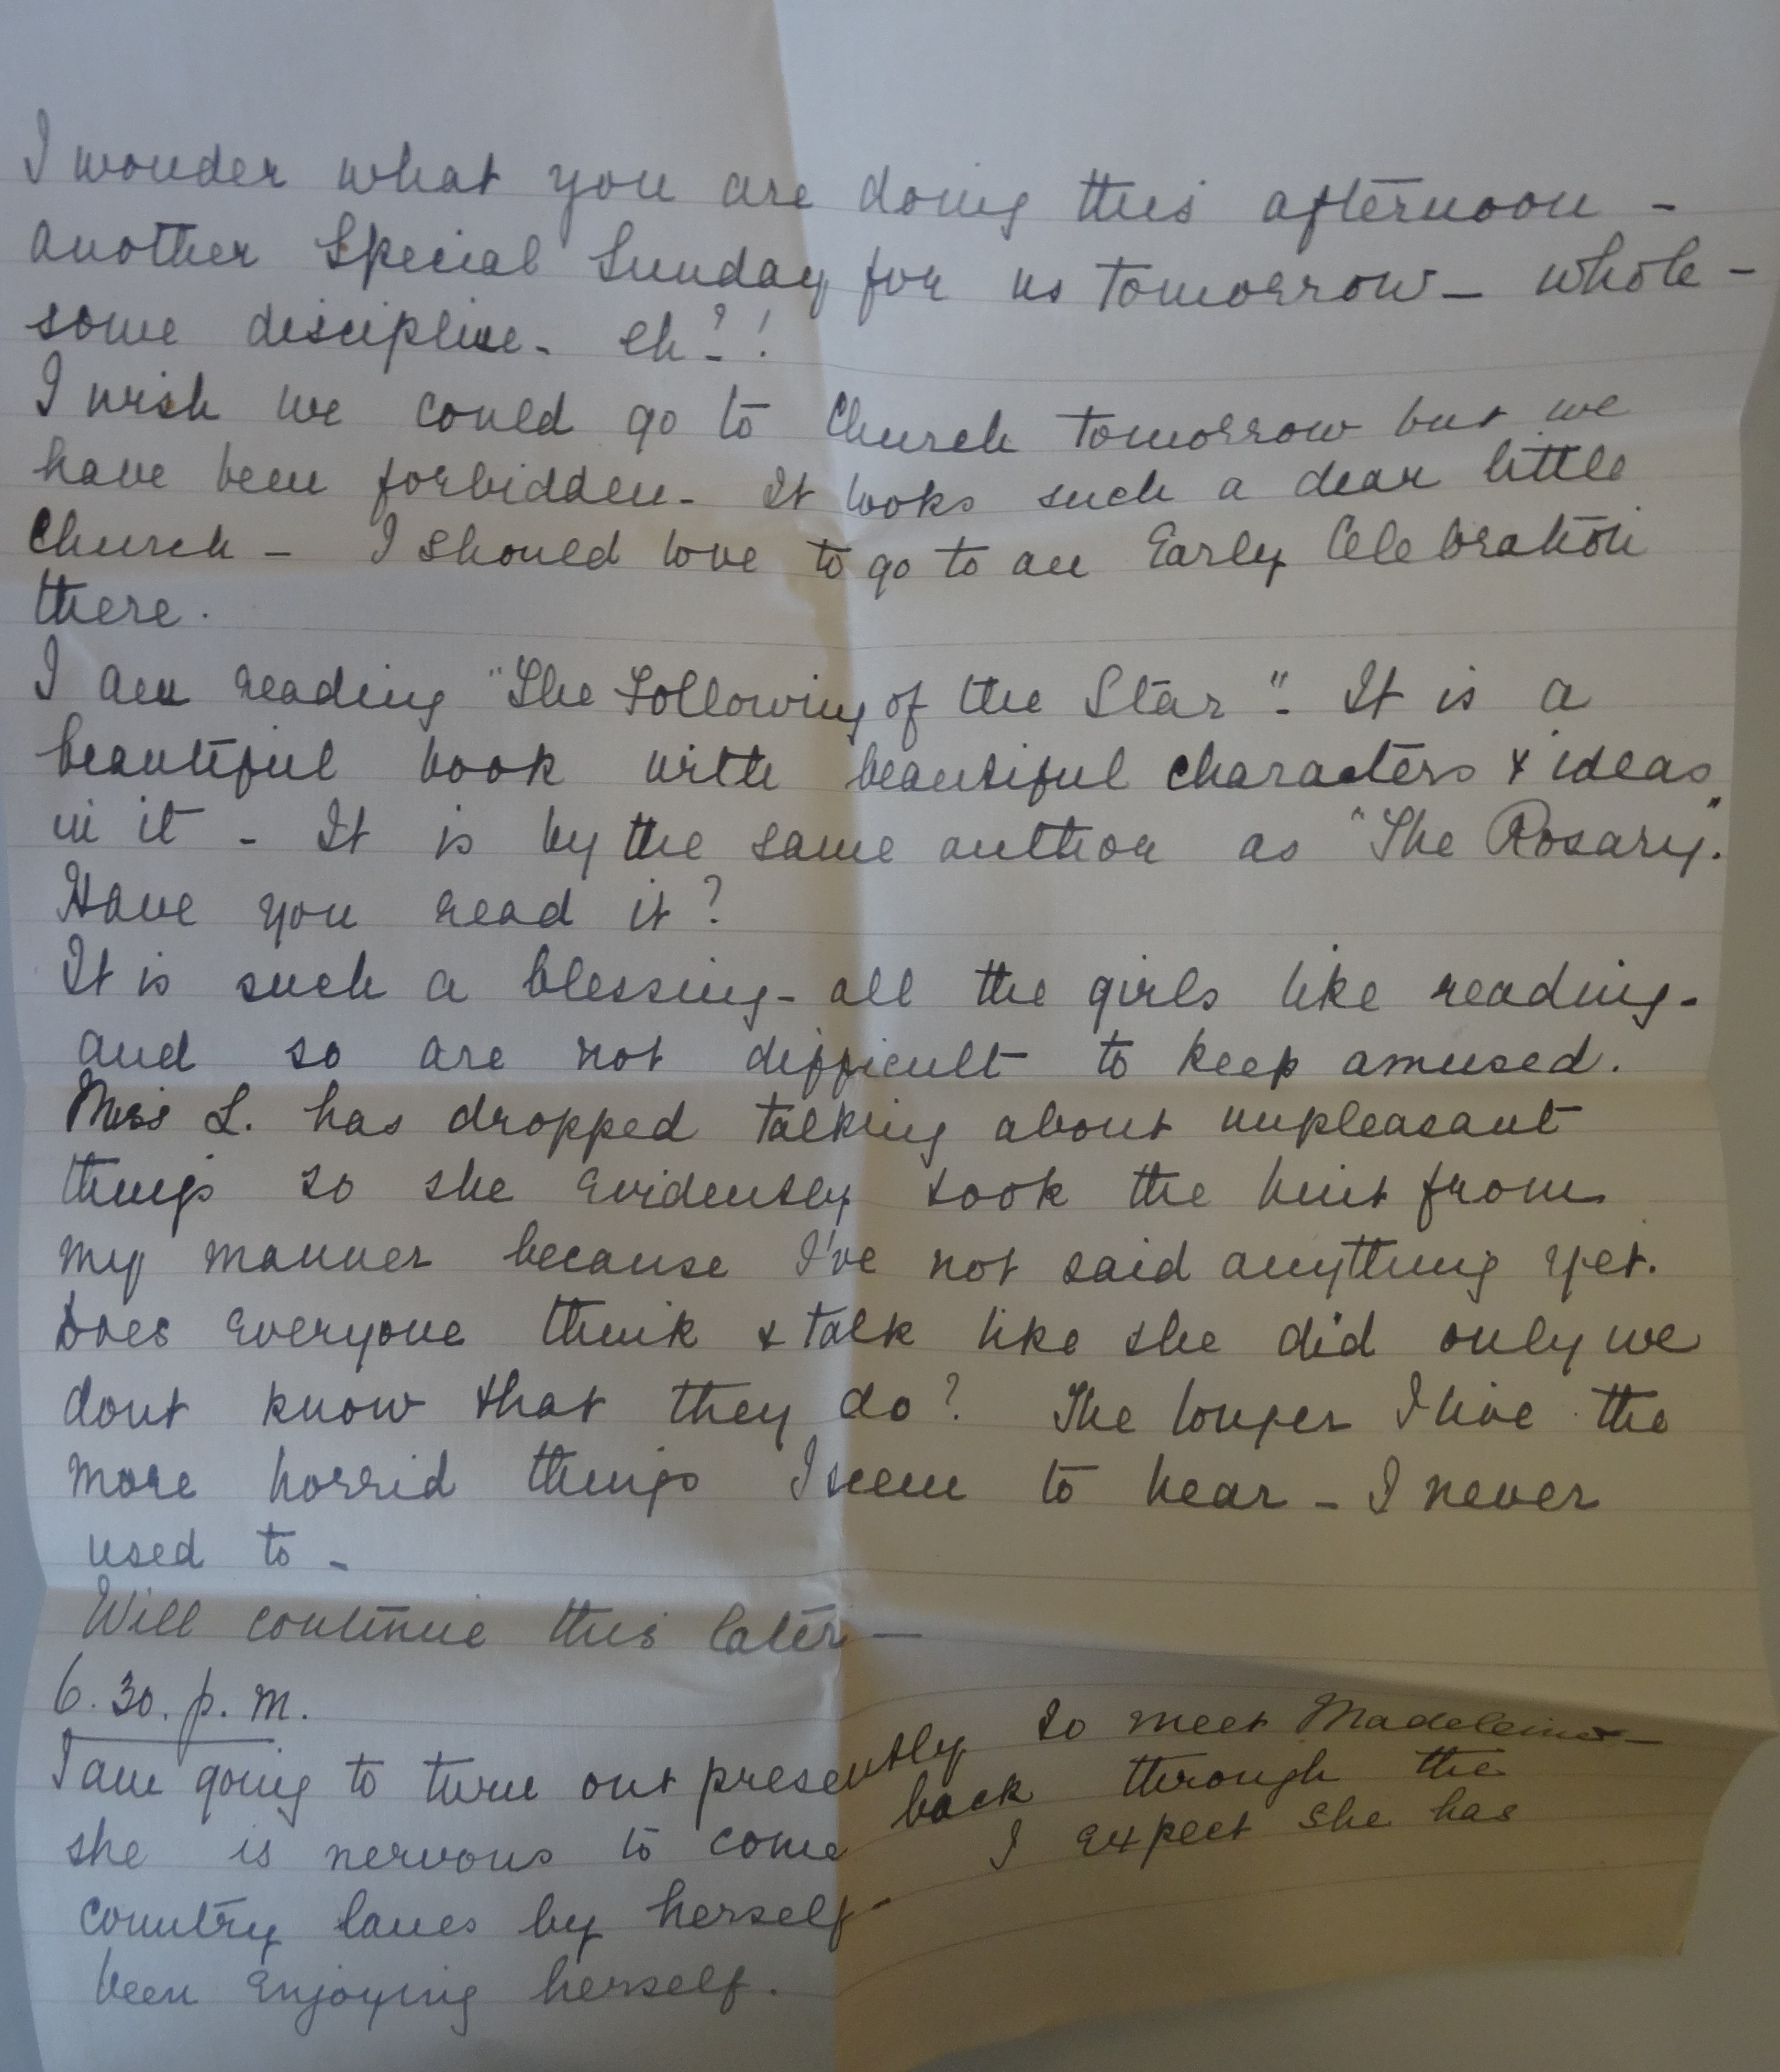 I wonder what you are doing this afternoon -
another Special Sunday for us tomorrow - whole -
some discipline - eh - ? !
I wish we could go to Church tomorrow but we
have been forbidden - It looks such a dear little
Church - I should love to go to an Early Celebration
there .
I am reading "The Following of the Star" - It is a
beautiful book with beautiful characters & ideas
in it - It is by the same author as "The Rosary".
Have you read it ?
It is such a blessing - all the girls like reading -
and so are not difficult to keep amused .
Miss L. has dropped talking about unpleasant
things so she evidently took the hint from
my manner because I've not said anything yet .
Does everyone think & talk like she did only we
dont know that they do ? The longer I live the
more horrid things I seem to hear - I never
used to -
Will continue this later —
6. 30. p. m.
I am going to turn out presently to meet Madeleine -
she is nervous to come back through the
country lanes by herself - I expect she has
been enjoying herself .